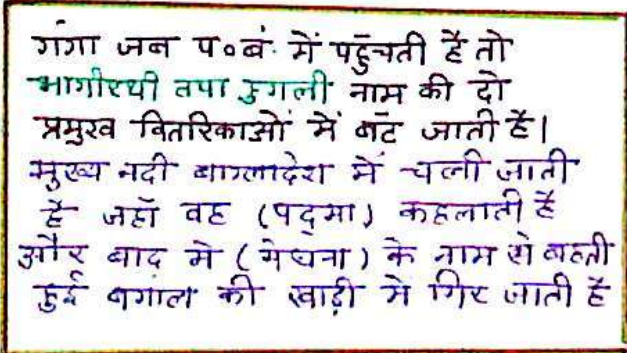 गंगा जब प०बं. में पहुँचती है तो
भागीरथी तथा हुगली नाम की दो
प्रमुख वितरिकाओं में बँट जाती है।
मुख्य नदी बाग्लादेश में चली जाती
है जहाँ वह (पद्मा) कहलाती है
और बाद मे (मेघना) के नाम से बहती
हुई बगाल की खाड़ी मे गिर जाती है